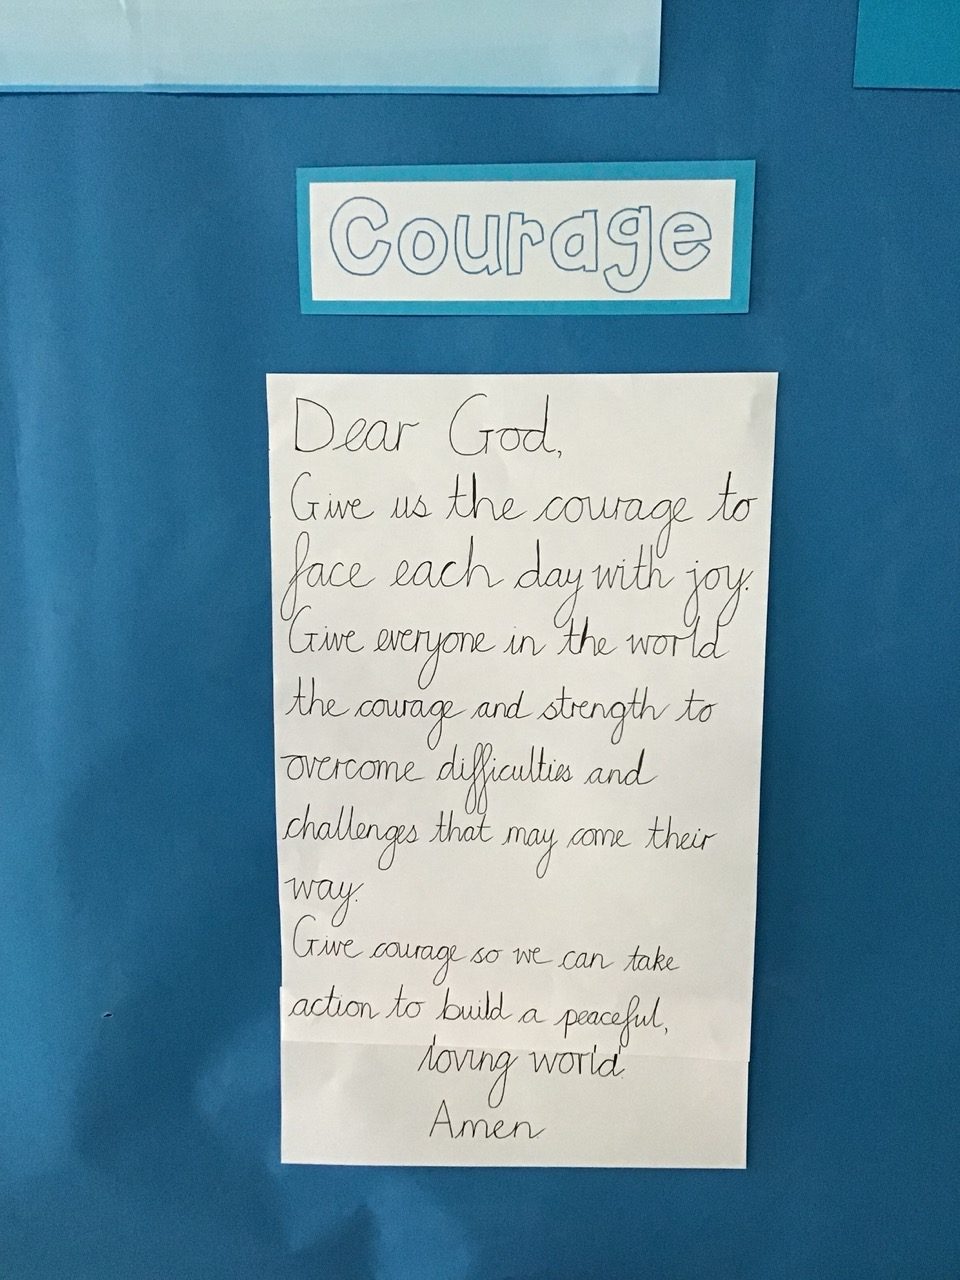 Courage
Dear God,
Give us the courage to
face each day with joy.
Give everyone in the world
the courage and strength to
overcome difficulties and
challenges that may come their
way.
Give courage so we can take
action to build a peaceful,
loving world.
Amen